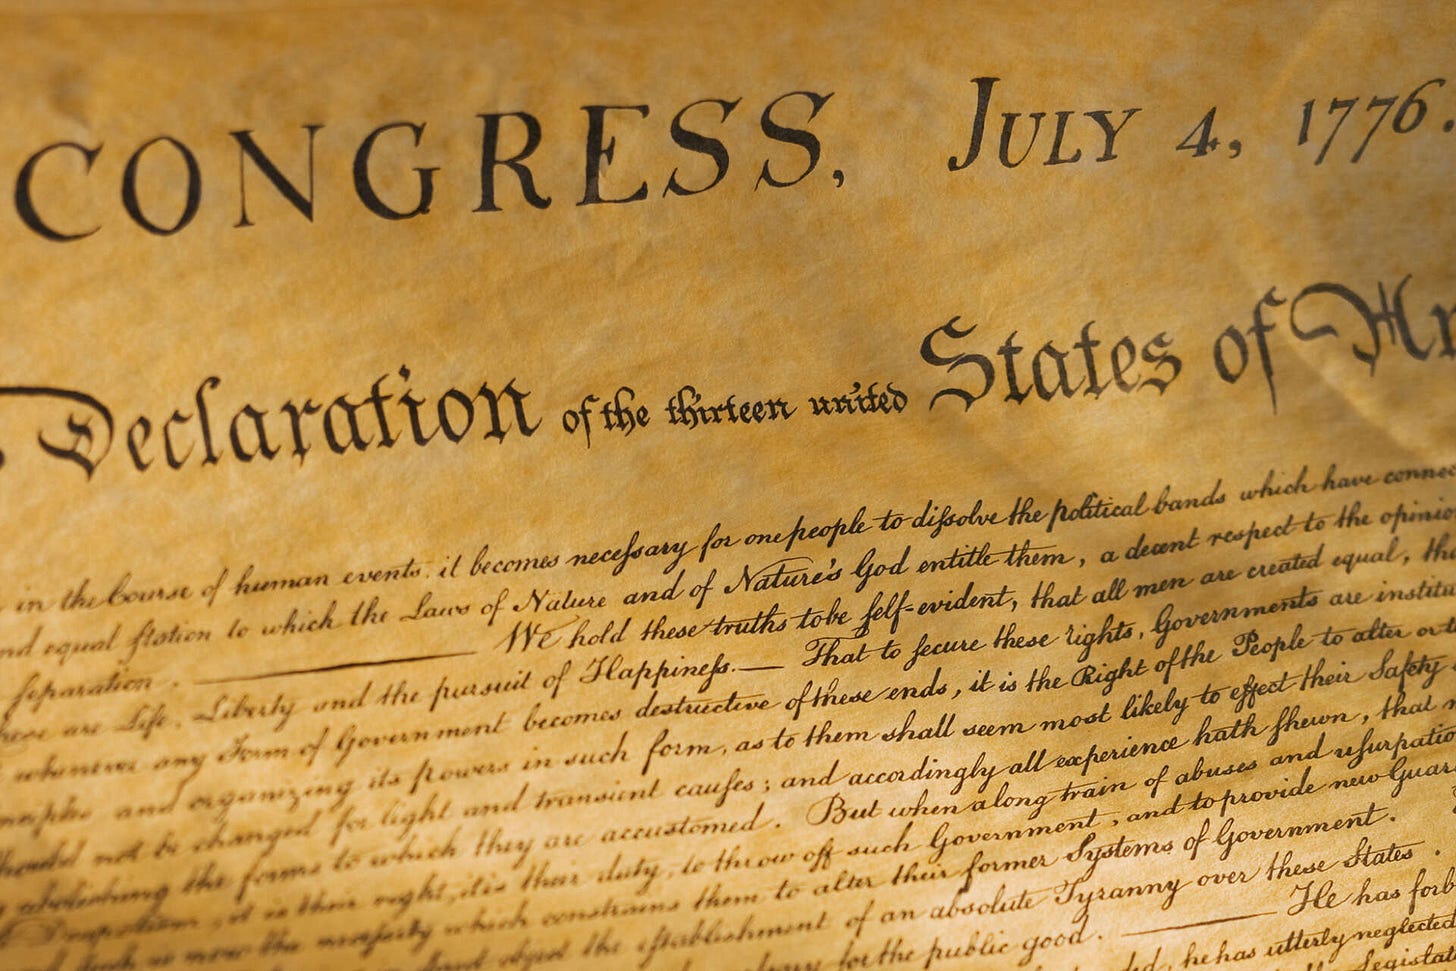 CONGRESS, JULY 4, 1776.
Declaration of the thirteen united States of Am
in the Course of human events, it becomes necessary for one people to dissolve the political bands which have connec
nd equal station to which the Laws of Nature and of Nature's God entitle them, a decent respect to the opinio
separation. — We hold these truths to be self-evident, that all men are created equal, tha
are Life, Liberty and the pursuit of Happiness.— That to secure these rights, Governments are institu
whenever any Form of Government becomes destructive of these ends, it is the Right of the People to alter or to
and organizing its powers in such form, as to them shall seem most likely to effect their Safety
should not be changed for light and transient causes; and accordingly all experience hath shewn, that
abolishing the forms to which they are accustomed. But when a long train of abuses and usurpatio
Despotism, it is their right, it is their duty, to throw off such Government, and to provide new Guar
such is now the necessity which constrains them to alter their former Systems of Government.
object the establishment of an absolute Tyranny over these States.
for the public good. — He has forb
he has utterly neglected
Legislat